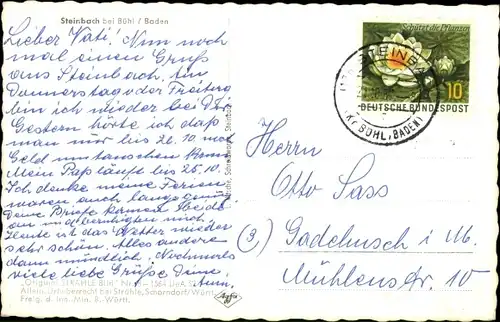 Steinbach bei Bühl / Baden
Lieber Vati! Nun noch
mal einen Gruß
aus Steinbach. Am
Donnerstag oder Freitag
bin ich wieder bei Dir
Gestern hörte ich daß
man nur bis 26.10 noch
Geld umtauschen kann
Mein Paß läuft bis 25.10.
Ich denke meine Ferien
waren auch lang genug
Deine Briefe kamen beide
an
Heute ist das Wetter wieder
sehr schön. Alles andere
dann mündlich. Nochmals
viele liebe Grüße Deine
"Original STRÄHLE BILD"
Allein. Urheberrecht bei Strähle, Schorndorf/Württ.
Freig. d. Inn. Min. B.-Württ.
Agfa
Schützt die Pflanzen
10
DEUTSCHE BUNDESPOST
STEINBACH
(Kr BÜHL, BADEN)
Herrn
Otto Sass
(3) Gadebusch i. M.
Mühlenstr. 10